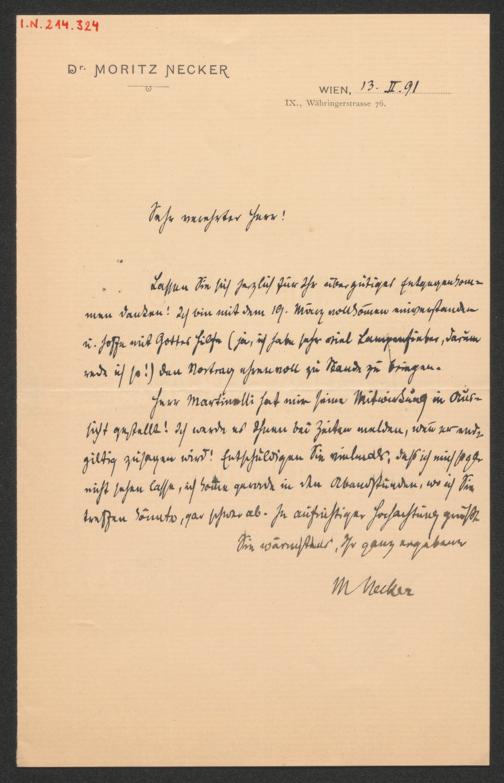 I.N. 214.324
Dr. MORITZ NECKER
WIEN, 13. II. 91
IX., Währingerstrasse 76.
Sehr verehrter Herr!
Lassen Sie sich herzlich für Ihr übergütiges Entgegenkom-
men danken! Ich bin mit dem 19. März vollkomen einverstanden
u. hoffe mit Gottes Hilfe (ja, ich habe sehr viel Lampenfieber, darum
rede ich so!) den Vortrag ehrenvoll zu Stande zu bringen.
Herr Martinelli hat mir seine Mitwirkung in Aus-
sicht gestellt! Ich werde es Ihnen bei Zeiten melden, wen er end-
giltig zusagen wird! Entschuldigen Sie vielmals, daß ich mich
nicht sehen lasse, ich kome gerade in den Abendstunden, wo ich Sie
treffen könnte, gar schwer ab. In aufrichtiger Hochachtung grüßt
Sie wärmstens, Ihr ganz ergebener
M Necker